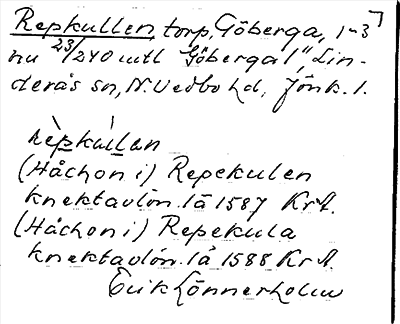 Repkullen torp, Göberga, 1-3
nu 23/240 mtl "Göbergal", Lin-
derås sn, N. Vedbo hd, Jönk. l.
rèpkúllan
(Håchon i) Repekulen
knektavlön. lä 1587 KrA.
(Håchon i) Repekula
knektavlön. lä 1588 KrA.
Erik Lönnerholm